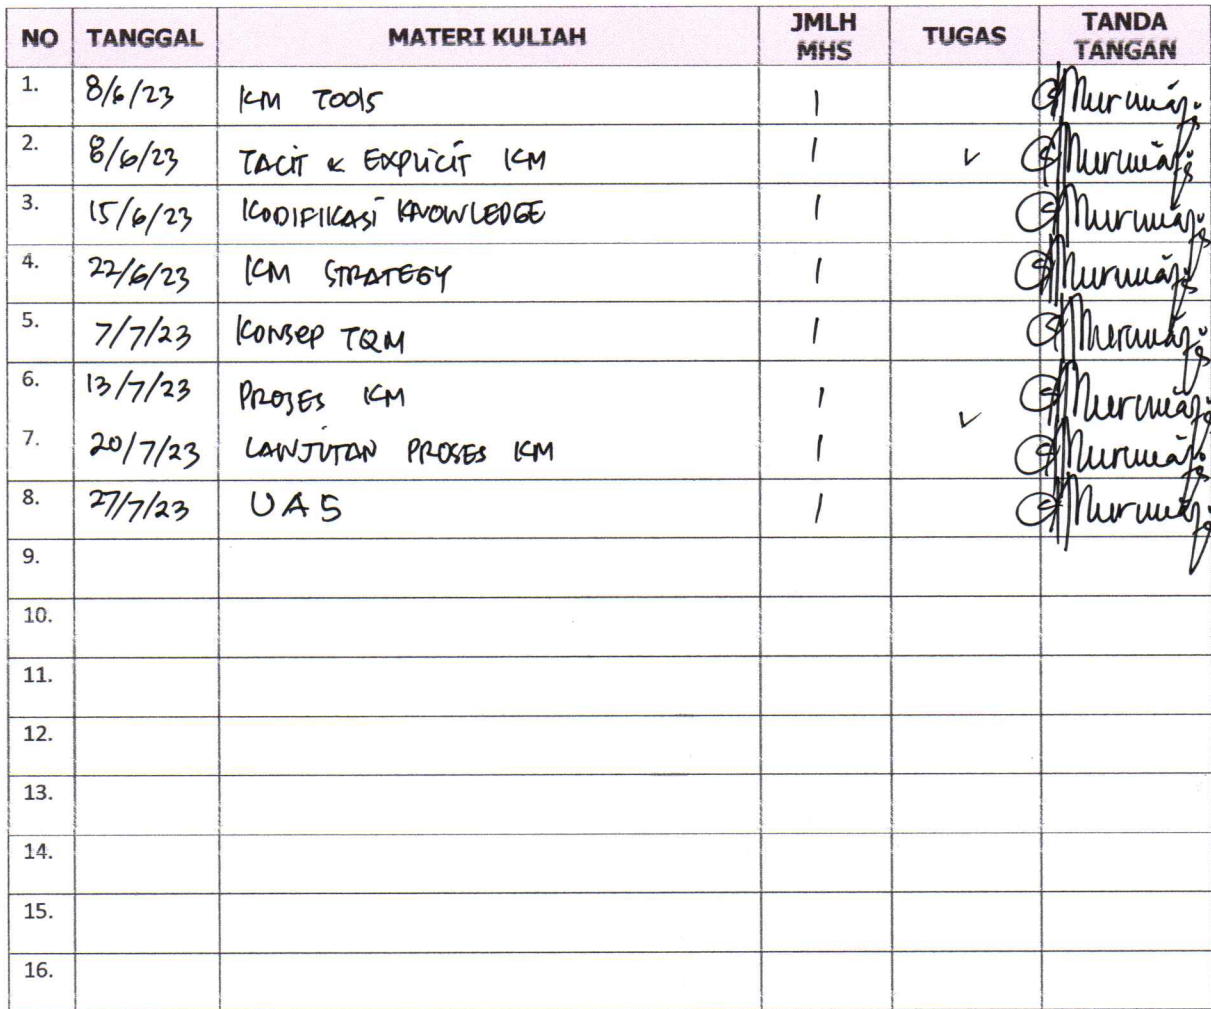 NO TANGGAL MATERI KULIAH JMLH MHS TUGAS TANDA TANGAN
1. 8/6/23 KM TOOLS 1
2. 8/6/23 TACIT & EXPLICIT KM 1 ✓
3. 15/6/23 KODIFIKASI KNOWLEDGE 1
4. 22/6/23 KM STRATEGY 1
5. 7/7/23 KONSEP TQM 1
6. 13/7/23 PROSES KM 1 ✓
7. 20/7/23 LANJUTAN PROSES KM 1
8. 27/7/23 UAS 1
9.
10.
11.
12.
13.
14.
15.
16.